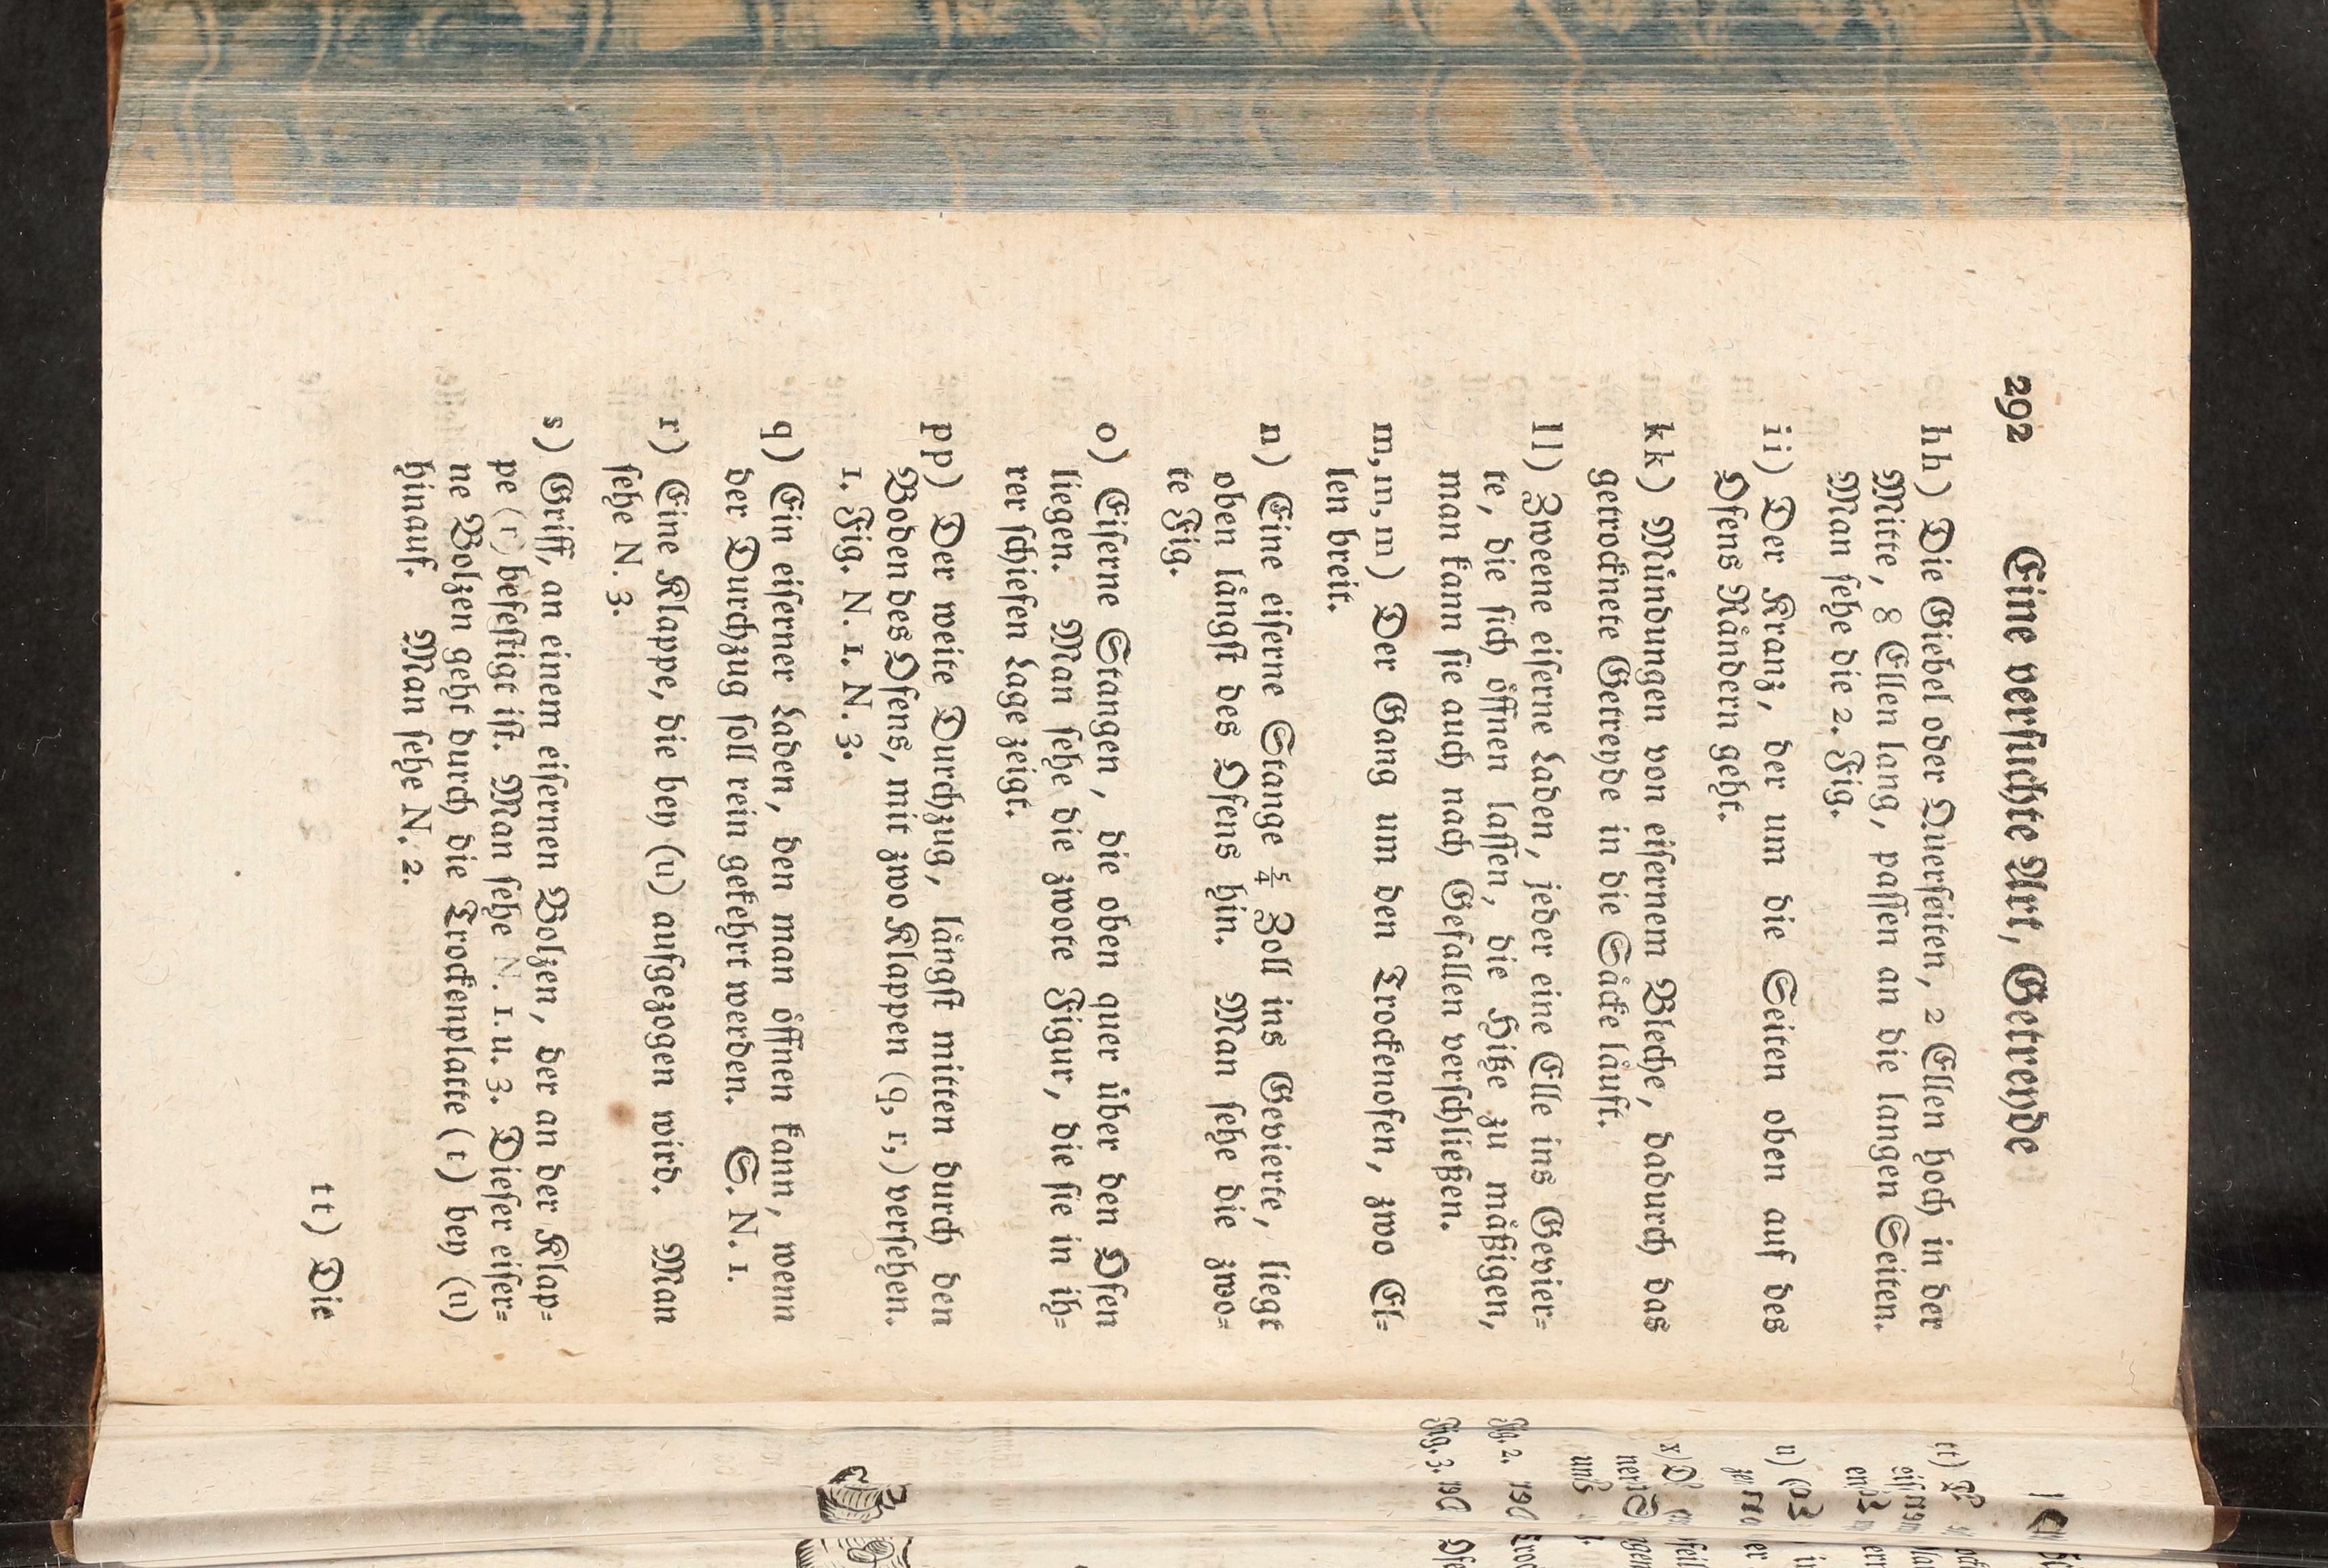 292 Eine versuchte Art, Getreyde
hh) Die Giebel oder Querseiten, 2 Ellen hoch in der
Mitte, 8 Ellen lang, passen an die langen Seiten.
Man sehe die 2. Fig.
ii) Der Kranz, der um die Seiten oben auf des
Ofens Rändern geht.
kk) Mündungen von eisernem Bleche, dadurch das
getrocknete Getreyde in die Säcke läuft.
ll) Zweene eiserne Laden, jeder eine Elle ins Gevier=
te, die sich öffnen lassen, die Hitze zu mäßigen,
man kann sie auch nach Gefallen verschließen.
m, m, m) Der Gang um den Trockenofen, zwo El=
len breit.
n) Eine eiserne Stange 5/4 Zoll ins Gevierte, liegt
oben längst des Ofens hin. Man sehe die zwo=
te Fig.
o) Eiserne Stangen, die oben quer über den Ofen
liegen. Man sehe die zwote Figur, die sie in ih=
rer schiefen Lage zeigt.
pp) Der weite Durchzug, längst mitten durch den
Boden des Ofens, mit zwo Klappen (q, r,) versehen.
1. Fig. N. 1. N. 3.
q) Ein eiserner Laden, den man öffnen kann, wenn
der Durchzug soll rein gekehrt werden. S. N. 1.
r) Eine Klappe, die bey (u) aufgezogen wird. Man
sehe N. 3.
s) Griff, an einem eisernen Bolzen, der an der Klap=
pe (r) befestigt ist. Man sehe N. 1. u. 3. Dieser eiser=
ne Bolzen geht durch die Trockenplatte (t) bey (u)
hinauf. Man sehe N. 2.
tt) Die
tt)
u)
x)
und
Fig. 2.
Fig. 3.